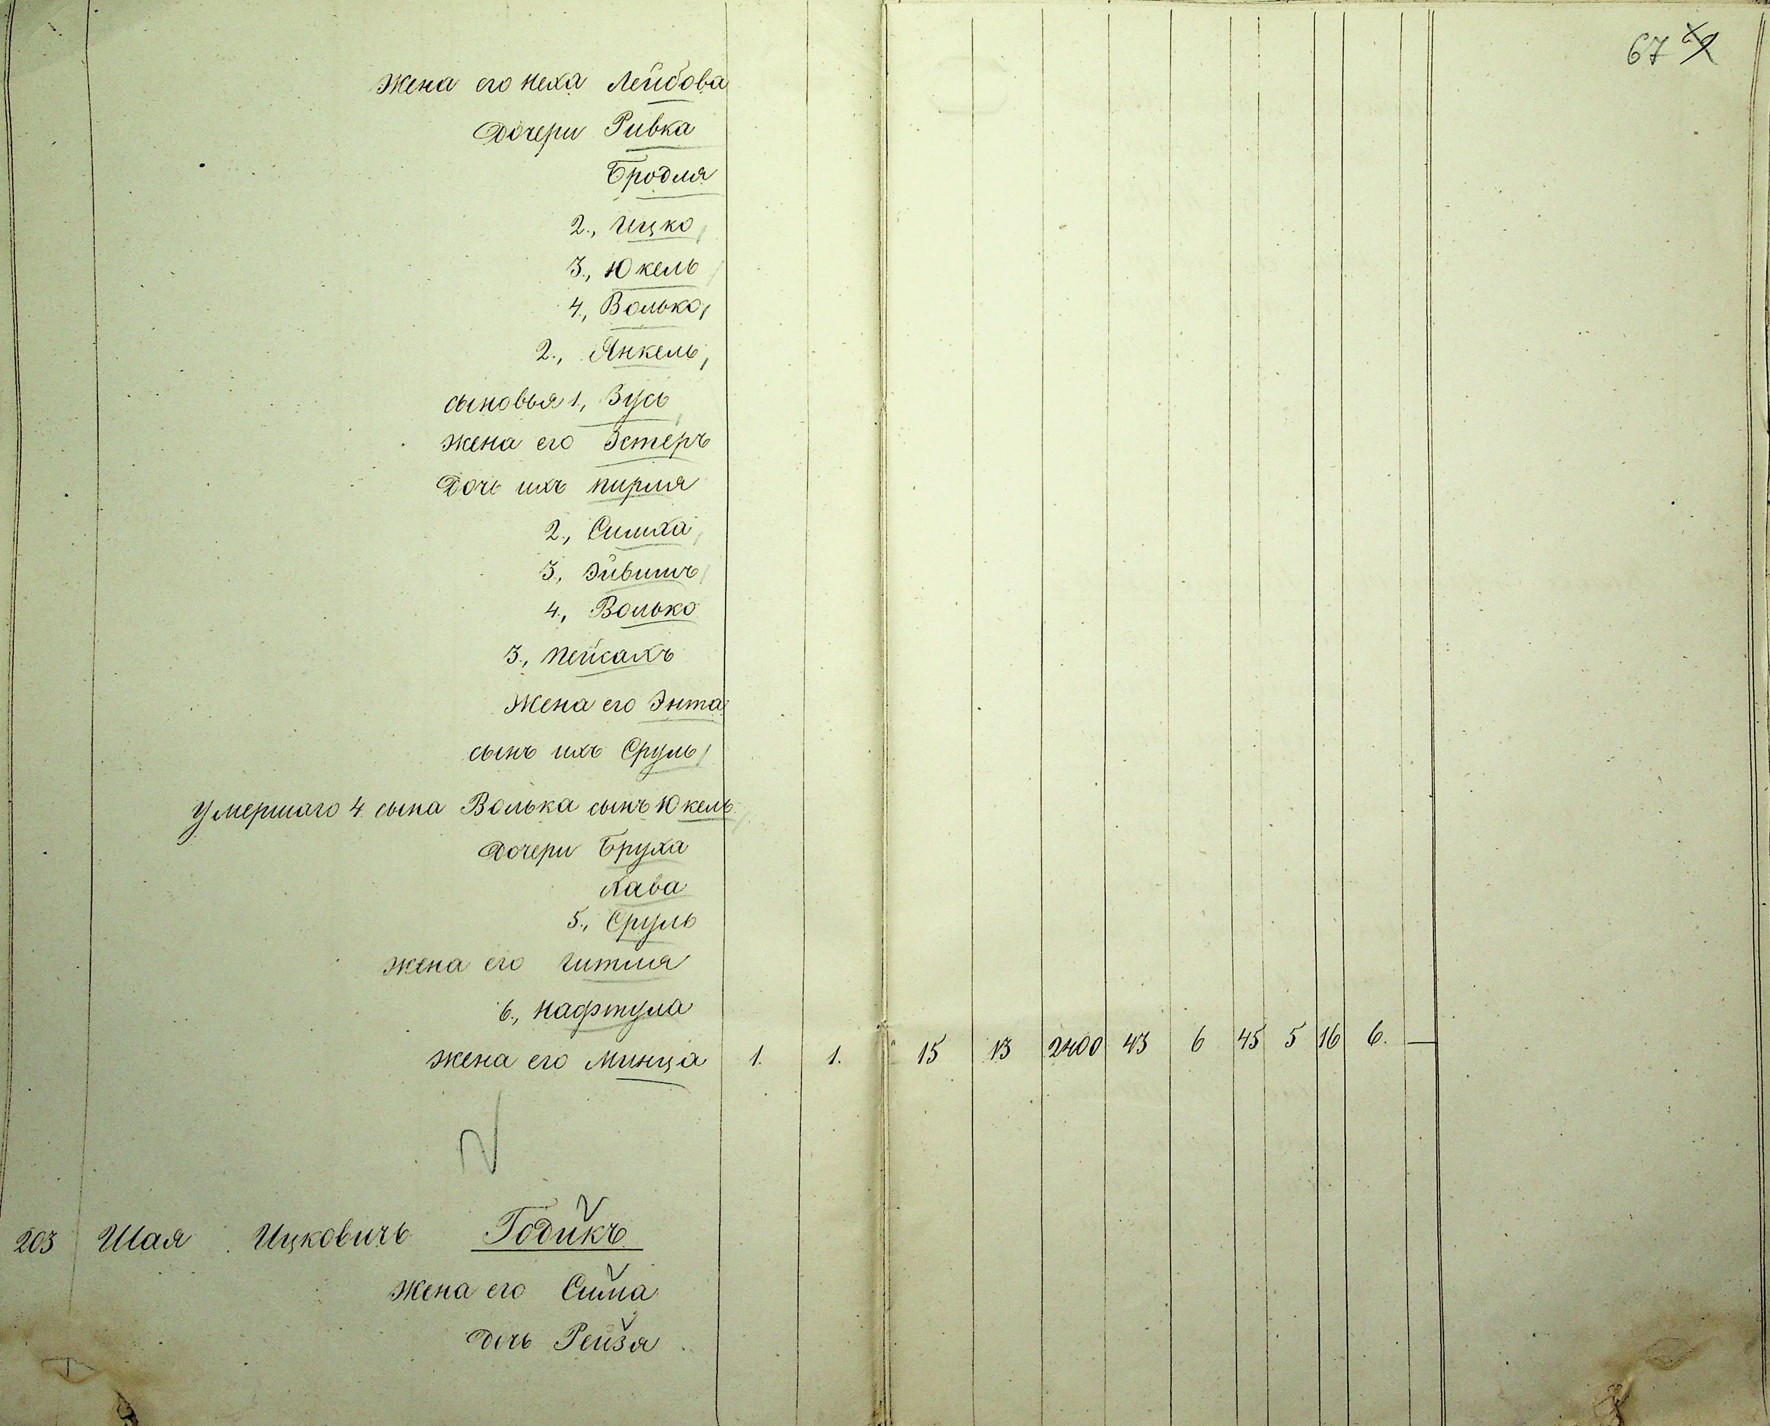 67
Жена его Неха Лейбова
Дочери Ривка
Бродля
2., Ицко
3., Юкель
4., Волько
2., Янкель
сыновья 1., Зусь
жена его Эстеръ
Дочь ихъ Пирля
2., Симха
3., Эйвишъ
4., Волько
3., Пейсахъ
Жена его Энта
сынъ ихъ Сруль
умершаго 4 сына Волька сынъ Юкель
Дочери Бруха
Хава
5., Сруль
жена его Гитля
6., Нафтула
жена его Минца 1. 1. 15 13 2400 43 6 45 5 16 6. —
203 Шая Ицковичъ Годикъ
Жена его Сима
Дочь Рейзя